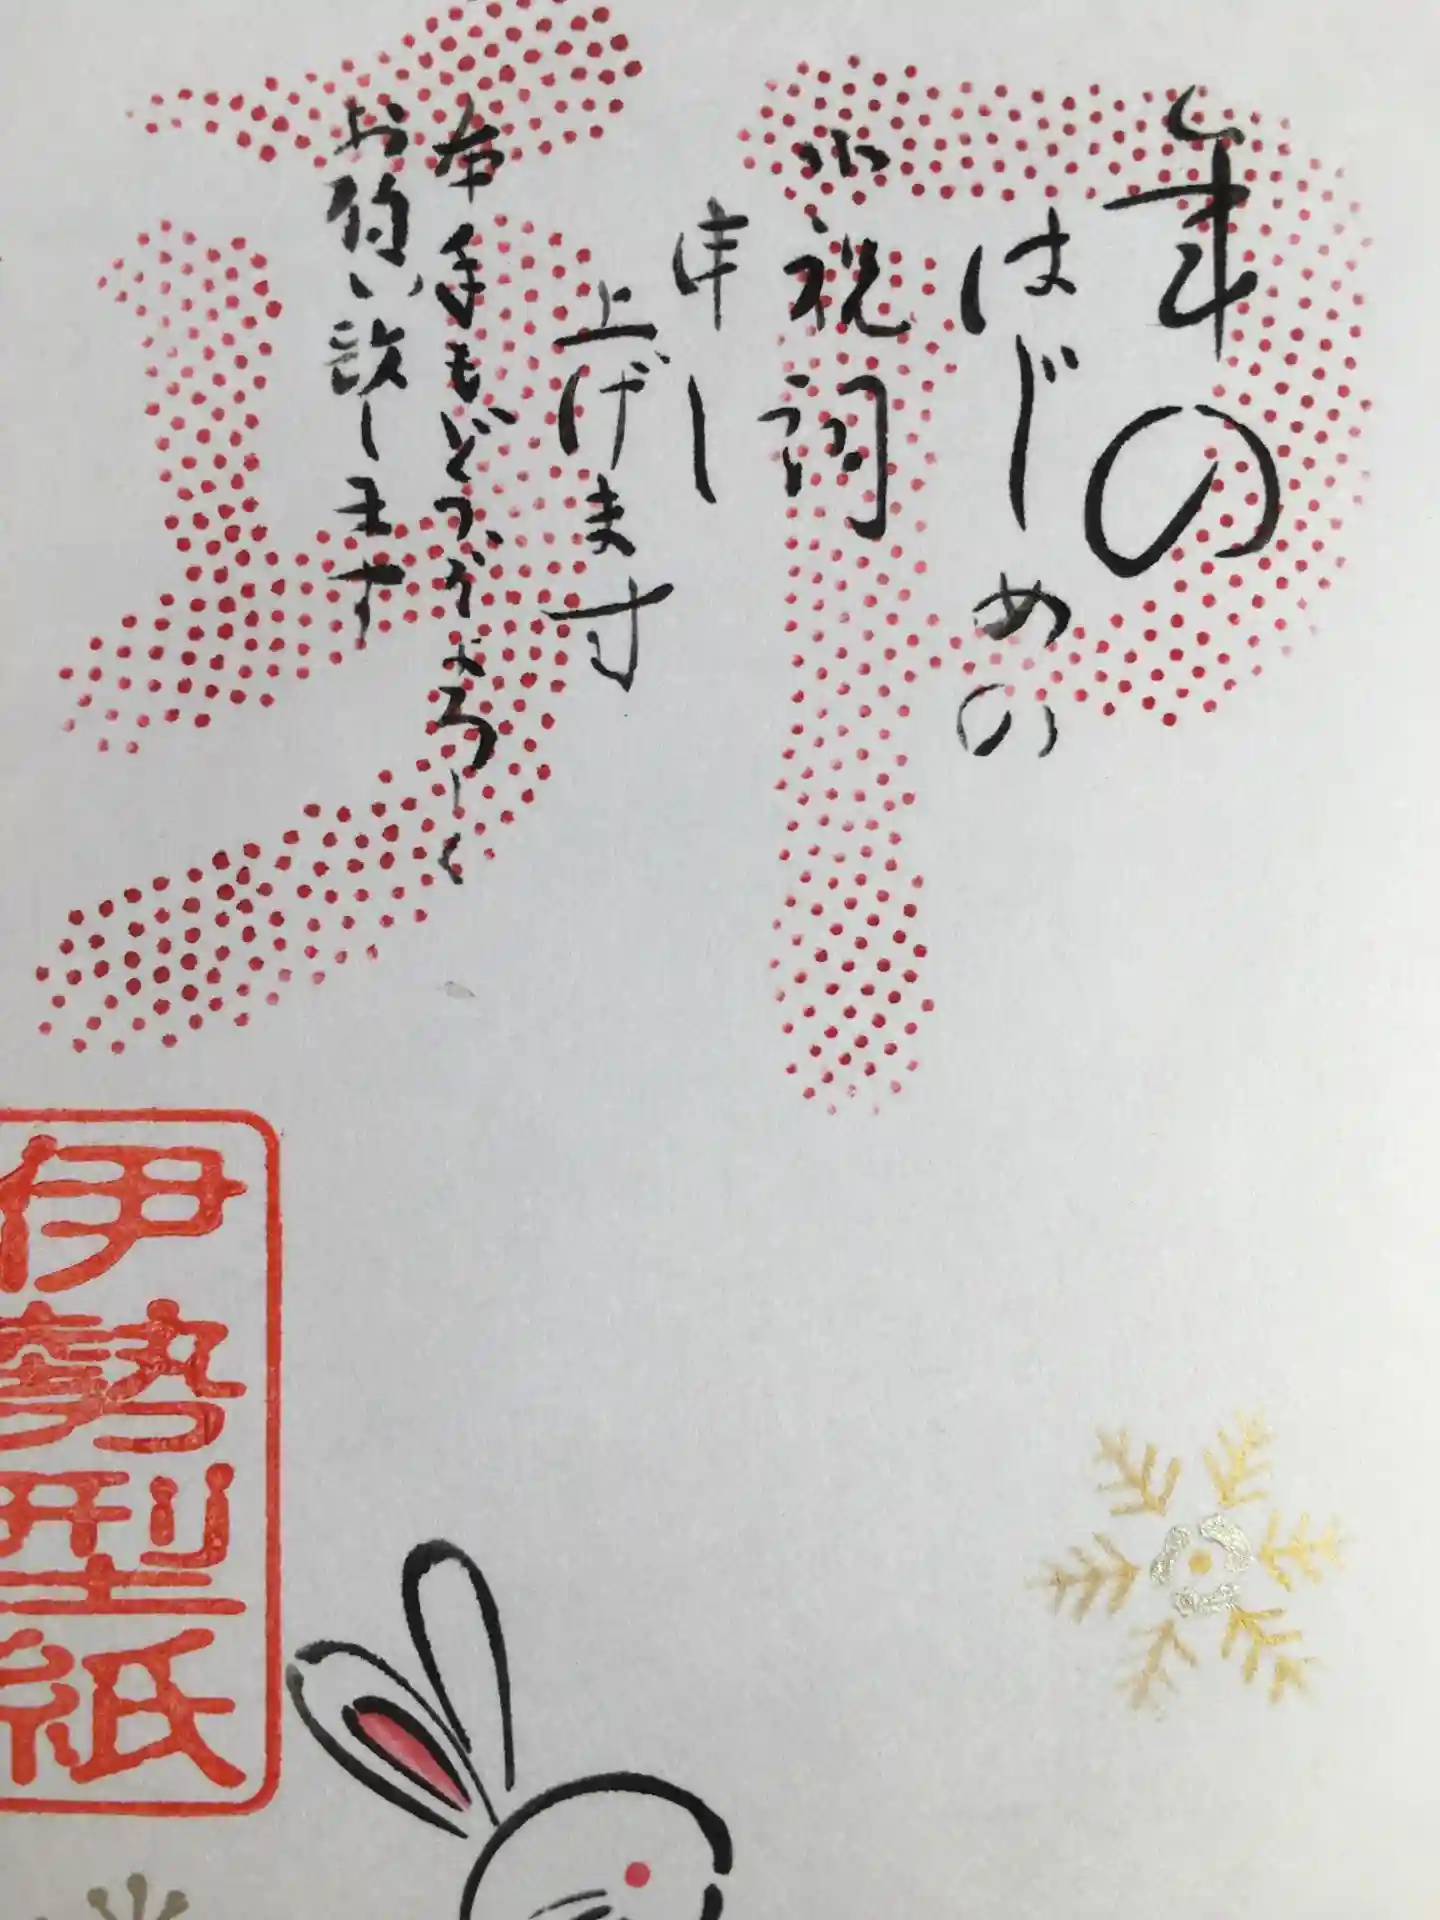 卯
年の
はじめの
祝詞
申し
上げます
本年もどうぞよろしく
お願い致します
伊勢型紙